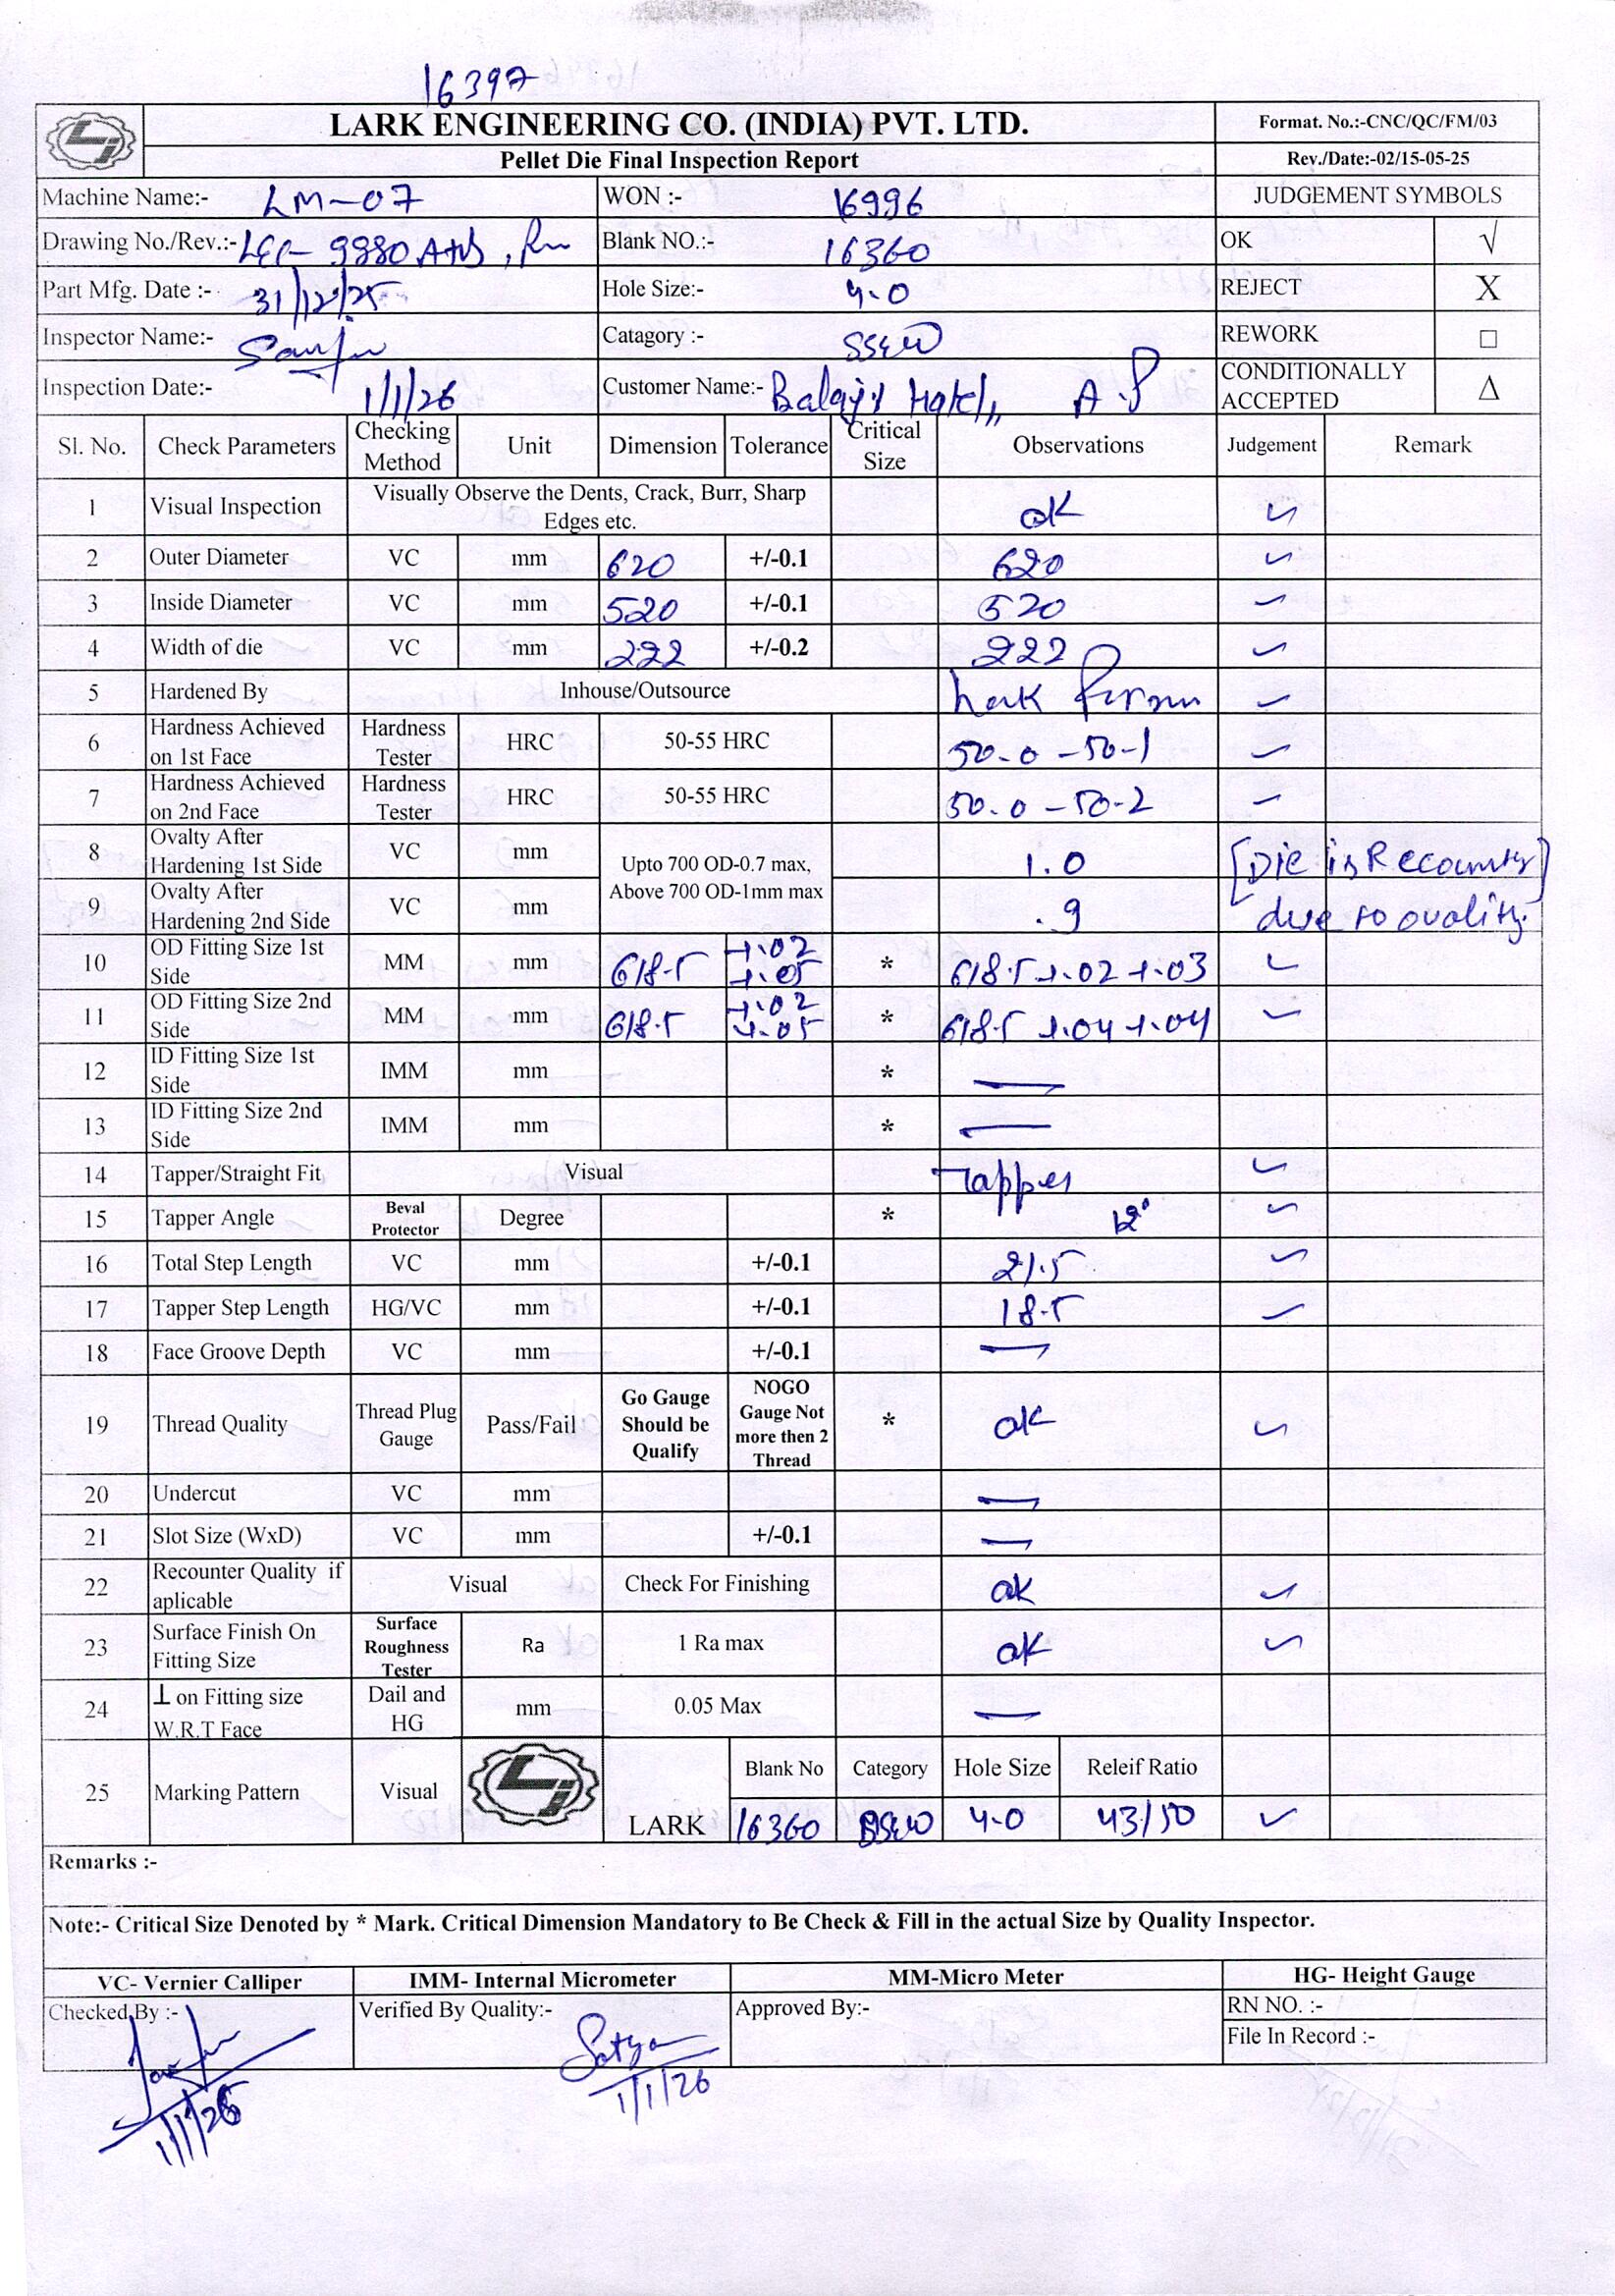 16397
LARK ENGINEERING CO. (INDIA) PVT. LTD.
Format. No.:-CNC/QC/FM/03
Pellet Die Final Inspection Report
Rev./Date:-02/15-05-25
Machine Name:- LM-07 WON :- 16996 JUDGEMENT SYMBOLS
Drawing No./Rev.:- 9980 Blank NO.:- 16360 OK √
Part Mfg. Date :- 31/12/25 Hole Size:- 4.0 REJECT X
Inspector Name:- Catagory :- SSEW REWORK □
Inspection Date:- 1/1/26 Customer Name:- Balaji A.P CONDITIONALLY ACCEPTED Δ
Sl. No. Check Parameters Checking Method Unit Dimension Tolerance Critical Size Observations Judgement Remark
1 Visual Inspection Visually Observe the Dents, Crack, Burr, Sharp Edges etc. ok ✓
2 Outer Diameter VC mm 620 +/-0.1 620 ✓
3 Inside Diameter VC mm 520 +/-0.1 520 ✓
4 Width of die VC mm 222 +/-0.2 222 ✓
5 Hardened By Inhouse/Outsource ✓
6 Hardness Achieved on 1st Face Hardness Tester HRC 50-55 HRC 50.0 - 50.1 ✓
7 Hardness Achieved on 2nd Face Hardness Tester HRC 50-55 HRC 50.0 - 50.2 ✓
8 Ovalty After Hardening 1st Side VC mm Upto 700 OD-0.7 max, Above 700 OD-1mm max 1.0 [Die is Recounter]
9 Ovalty After Hardening 2nd Side VC mm .9 due to ovality.
10 OD Fitting Size 1st Side MM mm 618.5 +.02 +.05 * 618.5 +.02 +.03 ✓
11 OD Fitting Size 2nd Side MM mm 618.5 +.02 +.05 * 618.5 +.04 +.04 ✓
12 ID Fitting Size 1st Side IMM mm * —
13 ID Fitting Size 2nd Side IMM mm * —
14 Tapper/Straight Fit Visual Tapper ✓
15 Tapper Angle Beval Protector Degree * 12° ✓
16 Total Step Length VC mm +/-0.1 21.5 ✓
17 Tapper Step Length HG/VC mm +/-0.1 18.5 ✓
18 Face Groove Depth VC mm +/-0.1 —
19 Thread Quality Thread Plug Gauge Pass/Fail Go Gauge Should be Qualify NOGO Gauge Not more then 2 Thread * ok ✓
20 Undercut VC mm —
21 Slot Size (WxD) VC mm +/-0.1 —
22 Recounter Quality if aplicable Visual Check For Finishing ok ✓
23 Surface Finish On Fitting Size Surface Roughness Tester Ra 1 Ra max ok ✓
24 ⊥ on Fitting size W.R.T Face Dail and HG mm 0.05 Max —
25 Marking Pattern Visual LARK Blank No Category Hole Size Releif Ratio
16360 SSEW 4.0 43/50 ✓
Remarks :-
Note:- Critical Size Denoted by * Mark. Critical Dimension Mandatory to Be Check & Fill in the actual Size by Quality Inspector.
VC- Vernier Calliper IMM- Internal Micrometer MM-Micro Meter HG- Height Gauge
Checked By :- Verified By Quality:- Approved By:- RN NO. :-
File In Record :-
Satya
1/1/26 1/1/26